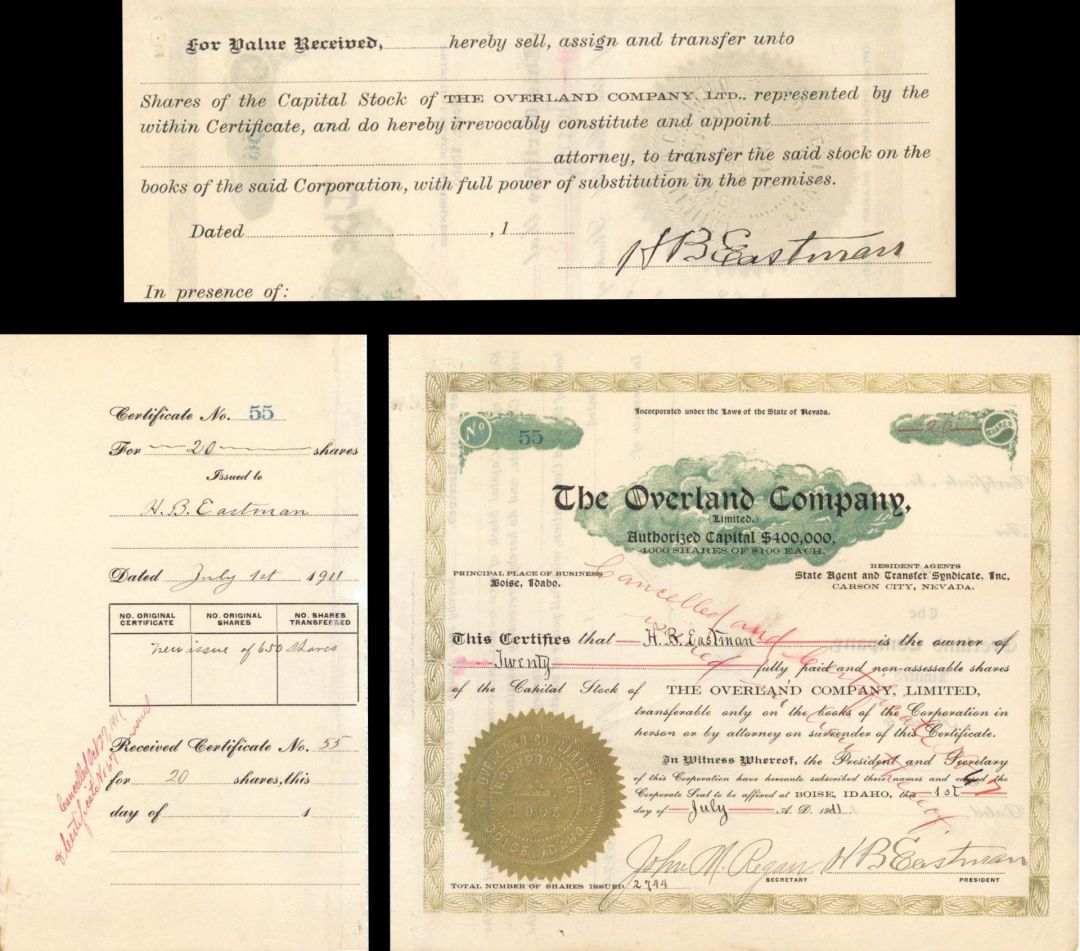 For Value Received, hereby sell, assign and transfer unto
Shares of the Capital Stock of THE OVERLAND COMPANY, LTD., represented by the
within Certificate, and do hereby irrevocably constitute and appoint
attorney, to transfer the said stock on the
books of the said Corporation, with full power of substitution in the premises.
Dated , 1
H B Eastman
In presence of:
Certificate No. 55
For 20 shares
Issued to
H. B. Eastman
Dated July 1st 1911
NO. ORIGINAL CERTIFICATE NO. ORIGINAL SHARES NO. SHARES TRANSFERRED
new issue of 650 shares
Received Certificate No. 55
for 20 shares, this
day of 1
Cancelled Oct 1911
& Certificate No 67 issued
Incorporated under the Laws of the State of Nevada.
No 55
20 SHARES
The Overland Company,
(Limited.)
Authorized Capital $400,000,
4000 SHARES OF $100 EACH.
PRINCIPAL PLACE OF BUSINESS
Boise, Idaho.
RESIDENT AGENTS
State Agent and Transfer Syndicate, Inc.
CARSON CITY, NEVADA.
This Certifies that H. B. Eastman is the owner of
Twenty fully paid and non-assessable shares
of the Capital Stock of THE OVERLAND COMPANY, LIMITED,
transferable only on the books of the Corporation in
person or by attorney on surrender of this Certificate.
In Witness Whereof, the President and Secretary
of this Corporation have hereunto subscribed their names and caused the
Corporate Seal to be affixed at BOISE, IDAHO, this 1st
day of July A. D. 1911.
Cancelled and Certificate
67
issued in lieu thereof.
John M. Regan H B Eastman
SECRETARY PRESIDENT
TOTAL NUMBER OF SHARES ISSUED, 2744